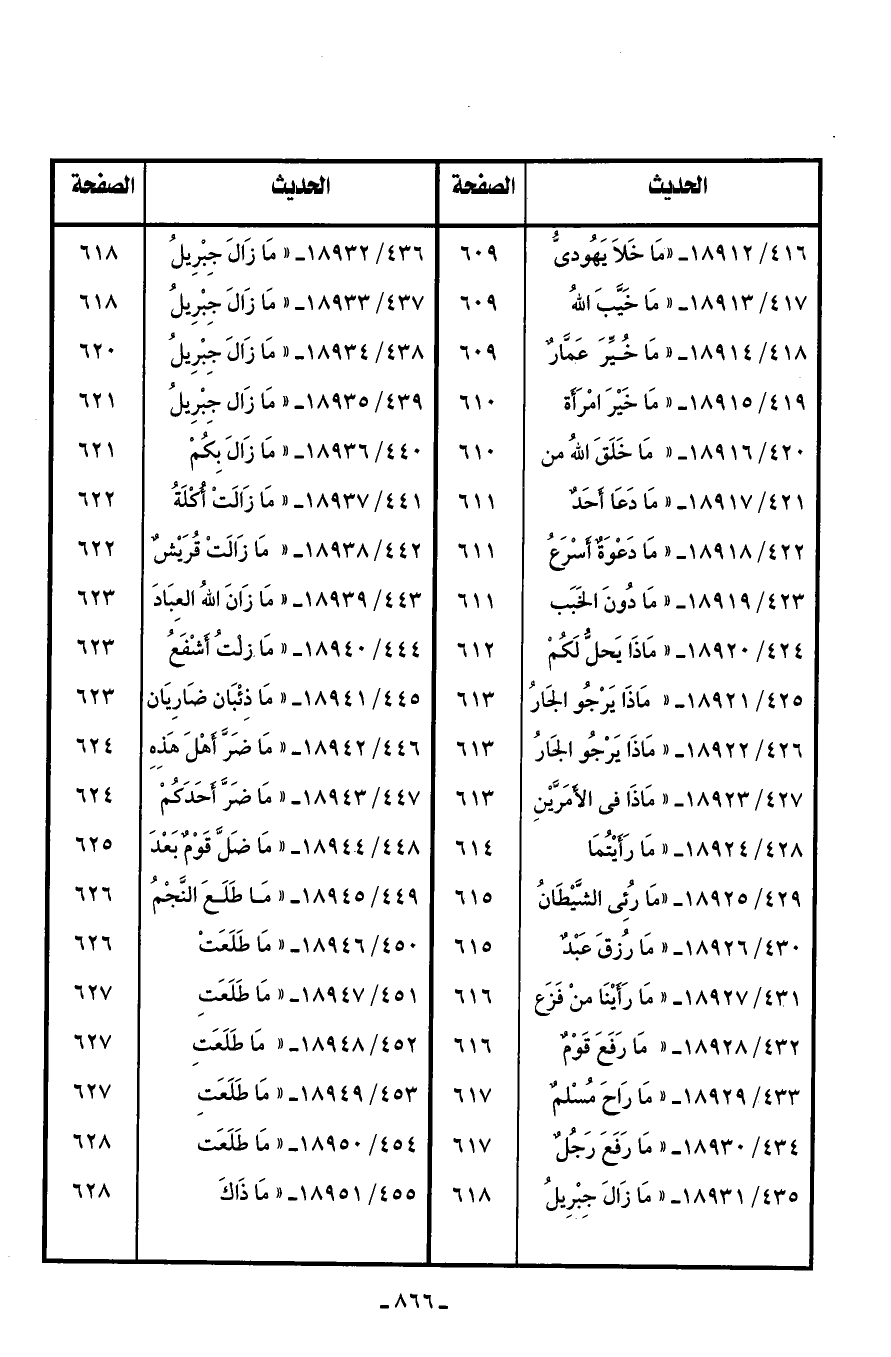 الحديث الصفحة الحديث الصفحة
٤١٦/ ١٨٩١٢ـ «مَا خَلاَ يَهُودىٌّ ٦٠٩ ٤٣٦/ ١٨٩٣٢ـ « مَا زَالَ جِبْرِيلُ ٦١٨
٤١٧/ ١٨٩١٣ـ « مَا خَيَّبَ اللهُ ٦٠٩ ٤٣٧/ ١٨٩٣٣ـ « مَا زَالَ جِبْرِيلُ ٦١٨
٤١٨/ ١٨٩١٤ـ « مَا خُيِّرَ عَمَّارٌ ٦٠٩ ٤٣٨/ ١٨٩٣٤ـ « مَا زَالَ جِبْرِيلُ ٦٢٠
٤١٩/ ١٨٩١٥ـ « مَا خَيْرَ امْرَأَة ٦١٠ ٤٣٩/ ١٨٩٣٥ـ « مَا زَال جِبْرِيلُ ٦٢١
٤٢٠/ ١٨٩١٦ـ « مَا خَلَقَ اللهُ من ٦١٠ ٤٤٠/ ١٨٩٣٦ـ « مَا زَالَ بِكُمْ ٦٢١
٤٢١/ ١٨٩١٧ـ « مَا دَعَا أَحَدٌ ٦١١ ٤٤١/ ١٨٩٣٧ـ « مَا زَالَتْ أُكْلَةُ ٦٢٢
٤٢٢/ ١٨٩١٨ـ « مَا دَعْوَةٌ أَسْرَعُ ٦١١ ٤٤٢/ ١٨٩٣٨ـ « مَا زَالَتْ قُرَيْشٌ ٦٢٢
٤٢٣/ ١٨٩١٩ـ « مَا دُونَ الخَبَب ٦١١ ٤٤٣/ ١٨٩٣٩ـ « مَا زَانَ اللهُ العِبَادَ ٦٢٣
٤٢٤/ ١٨٩٢٠ـ « مَاذَا يَحلُّ لَكُمْ ٦١٢ ٤٤٤/ ١٨٩٤٠ـ « مَا زِلْتُ أَشْفَعُ ٦٢٣
٤٢٥/ ١٨٩٢١ـ « مَاذَا يَرْجُو الجَارُ ٦١٣ ٤٤٥/ ١٨٩٤١ـ « مَا ذِئْبَان ضَارِيَان ٦٢٣
٤٢٦/ ١٨٩٢٢ـ « مَاذَا يَرْجُو الجَارُ ٦١٣ ٤٤٦/ ١٨٩٤٢ـ « مَا ضَرَّ أَهْلَ هَذِهِ ٦٢٤
٤٢٧/ ١٨٩٢٣ـ « مَاذَا فى الأمَرَّيْنِ ٦١٣ ٤٤٧/ ١٨٩٤٣ـ « مَا ضَرَّ أَحَدَكُمْ ٦٢٤
٤٢٨/ ١٨٩٢٤ـ « مَا رَأَيْتُمَا ٦١٤ ٤٤٨/ ١٨٩٤٤ـ « مَا ضَلَّ قَوْمٌ بَعْدَ ٦٢٥
٤٢٩/ ١٨٩٢٥ـ «مَا رُئِى الشَّيْطَانُ ٦١٥ ٤٤٩/ ١٨٩٤٥ـ « مَا طَلَعَ النَّجْمُ ٦٢٦
٤٣٠/ ١٨٩٢٦ـ « مَا رُزِقَ عَبْدٌ ٦١٥ ٤٥٠/ ١٨٩٤٦ـ « مَا طَلَعَتْ ٦٢٦
٤٣١/ ١٨٩٢٧ـ « مَا رَأَيْنَا منْ فَزَع ٦١٦ ٤٥١/ ١٨٩٤٧ـ « مَا طَلَعَتِ ٦٢٧
٤٣٢/ ١٨٩٢٨ـ « مَا رَفَعَ قَوْمٌ ٦١٦ ٤٥٢/ ١٨٩٤٨ـ « مَا طَلَعَتِ ٦٢٧
٤٣٣/ ١٨٩٢٩ـ « مَا رَاحَ مُسْلمٌ ٦١٧ ٤٥٣/ ١٨٩٤٩ـ « مَا طَلَعَتِ ٦٢٧
٤٣٤/ ١٨٩٣٠ـ « مَا رَفَعَ رَجُلٌ ٦١٧ ٤٥٤/ ١٨٩٥٠ـ « مَا طَلَعَت ٦٢٨
٤٣٥/ ١٨٩٣١ـ « مَا زَالَ جِبْرِيلُ ٦١٨ ٤٥٥/ ١٨٩٥١ـ « مَا ذَاكَ ٦٢٨
ـ ٨٦٦ ـ